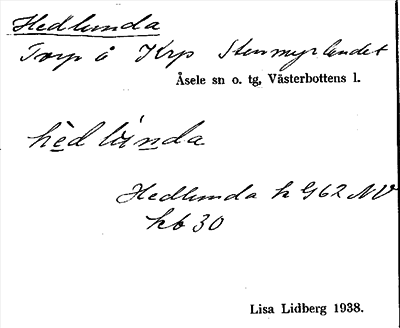 Hedlunda
Torp å Krp Stenmyrlandet
Åsele sn o. tg, Västerbottens l.
hèdlúnda
Hedlunda k G62 NV
kb 30
Lisa Lidberg 1938.